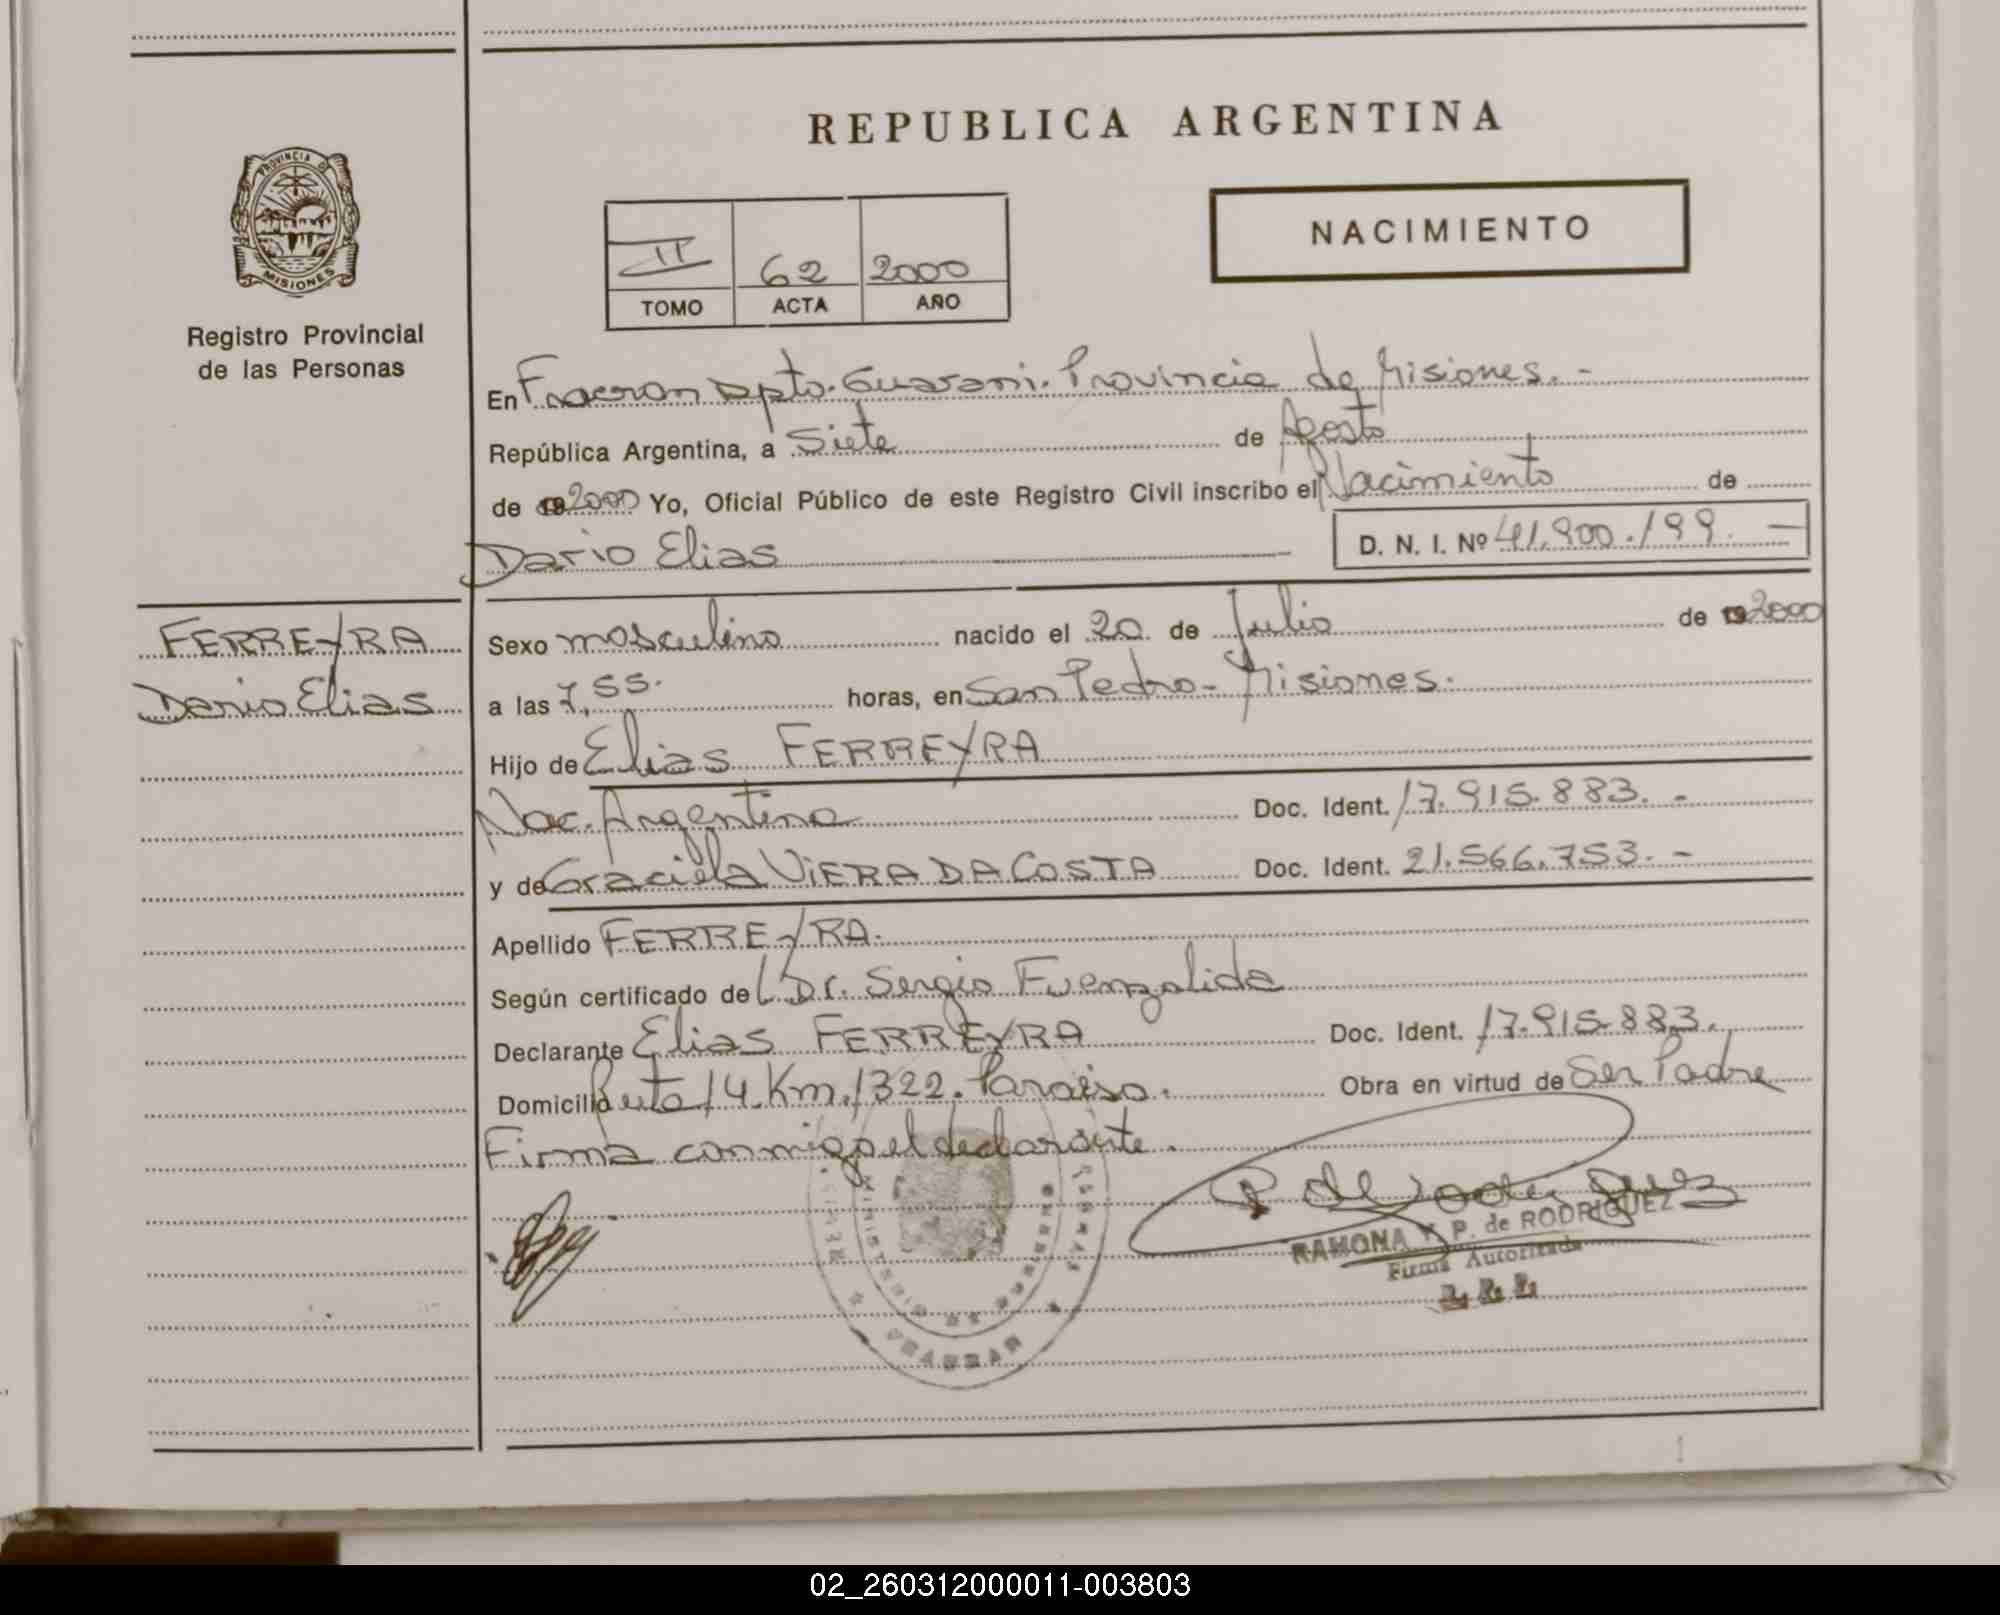 REPUBLICA ARGENTINA
PROVINCIA DE
MISIONES
Registro Provincial
de las Personas
II 62 2000
TOMO ACTA AÑO
NACIMIENTO
En Fracran Dpto. Guarani. Provincia de Misiones. -
República Argentina, a Siete de Agosto
de 19 2000 Yo, Oficial Público de este Registro Civil inscribo el Nacimiento de
Dario Elias D. N. I. Nº 41.900.199. —
FERREYRA
Dario Elias
Sexo masculino nacido el 20 de Julio de 19 2000
a las 7,55. horas, en San Pedro - Misiones.
Hijo de Elias FERREYRA
Nac. Argentina Doc. Ident. 17.915.883. -
y de Graciela VIERA DA COSTA Doc. Ident. 21.566.753. -
Apellido FERREYRA.
Según certificado del Dr. Sergio Fuenzalida
Declarante Elias FERREYRA Doc. Ident. 17.915.883.
Domicilio Ruta 14. Km. 1322. Paraiso. Obra en virtud de Ser Padre
Firma conmigo el declarante.
P de Rodriguez
RAMONA Y. P. de RODRIGUEZ
Firma Autorizada
MINISTERIO
02_260312000011-003803